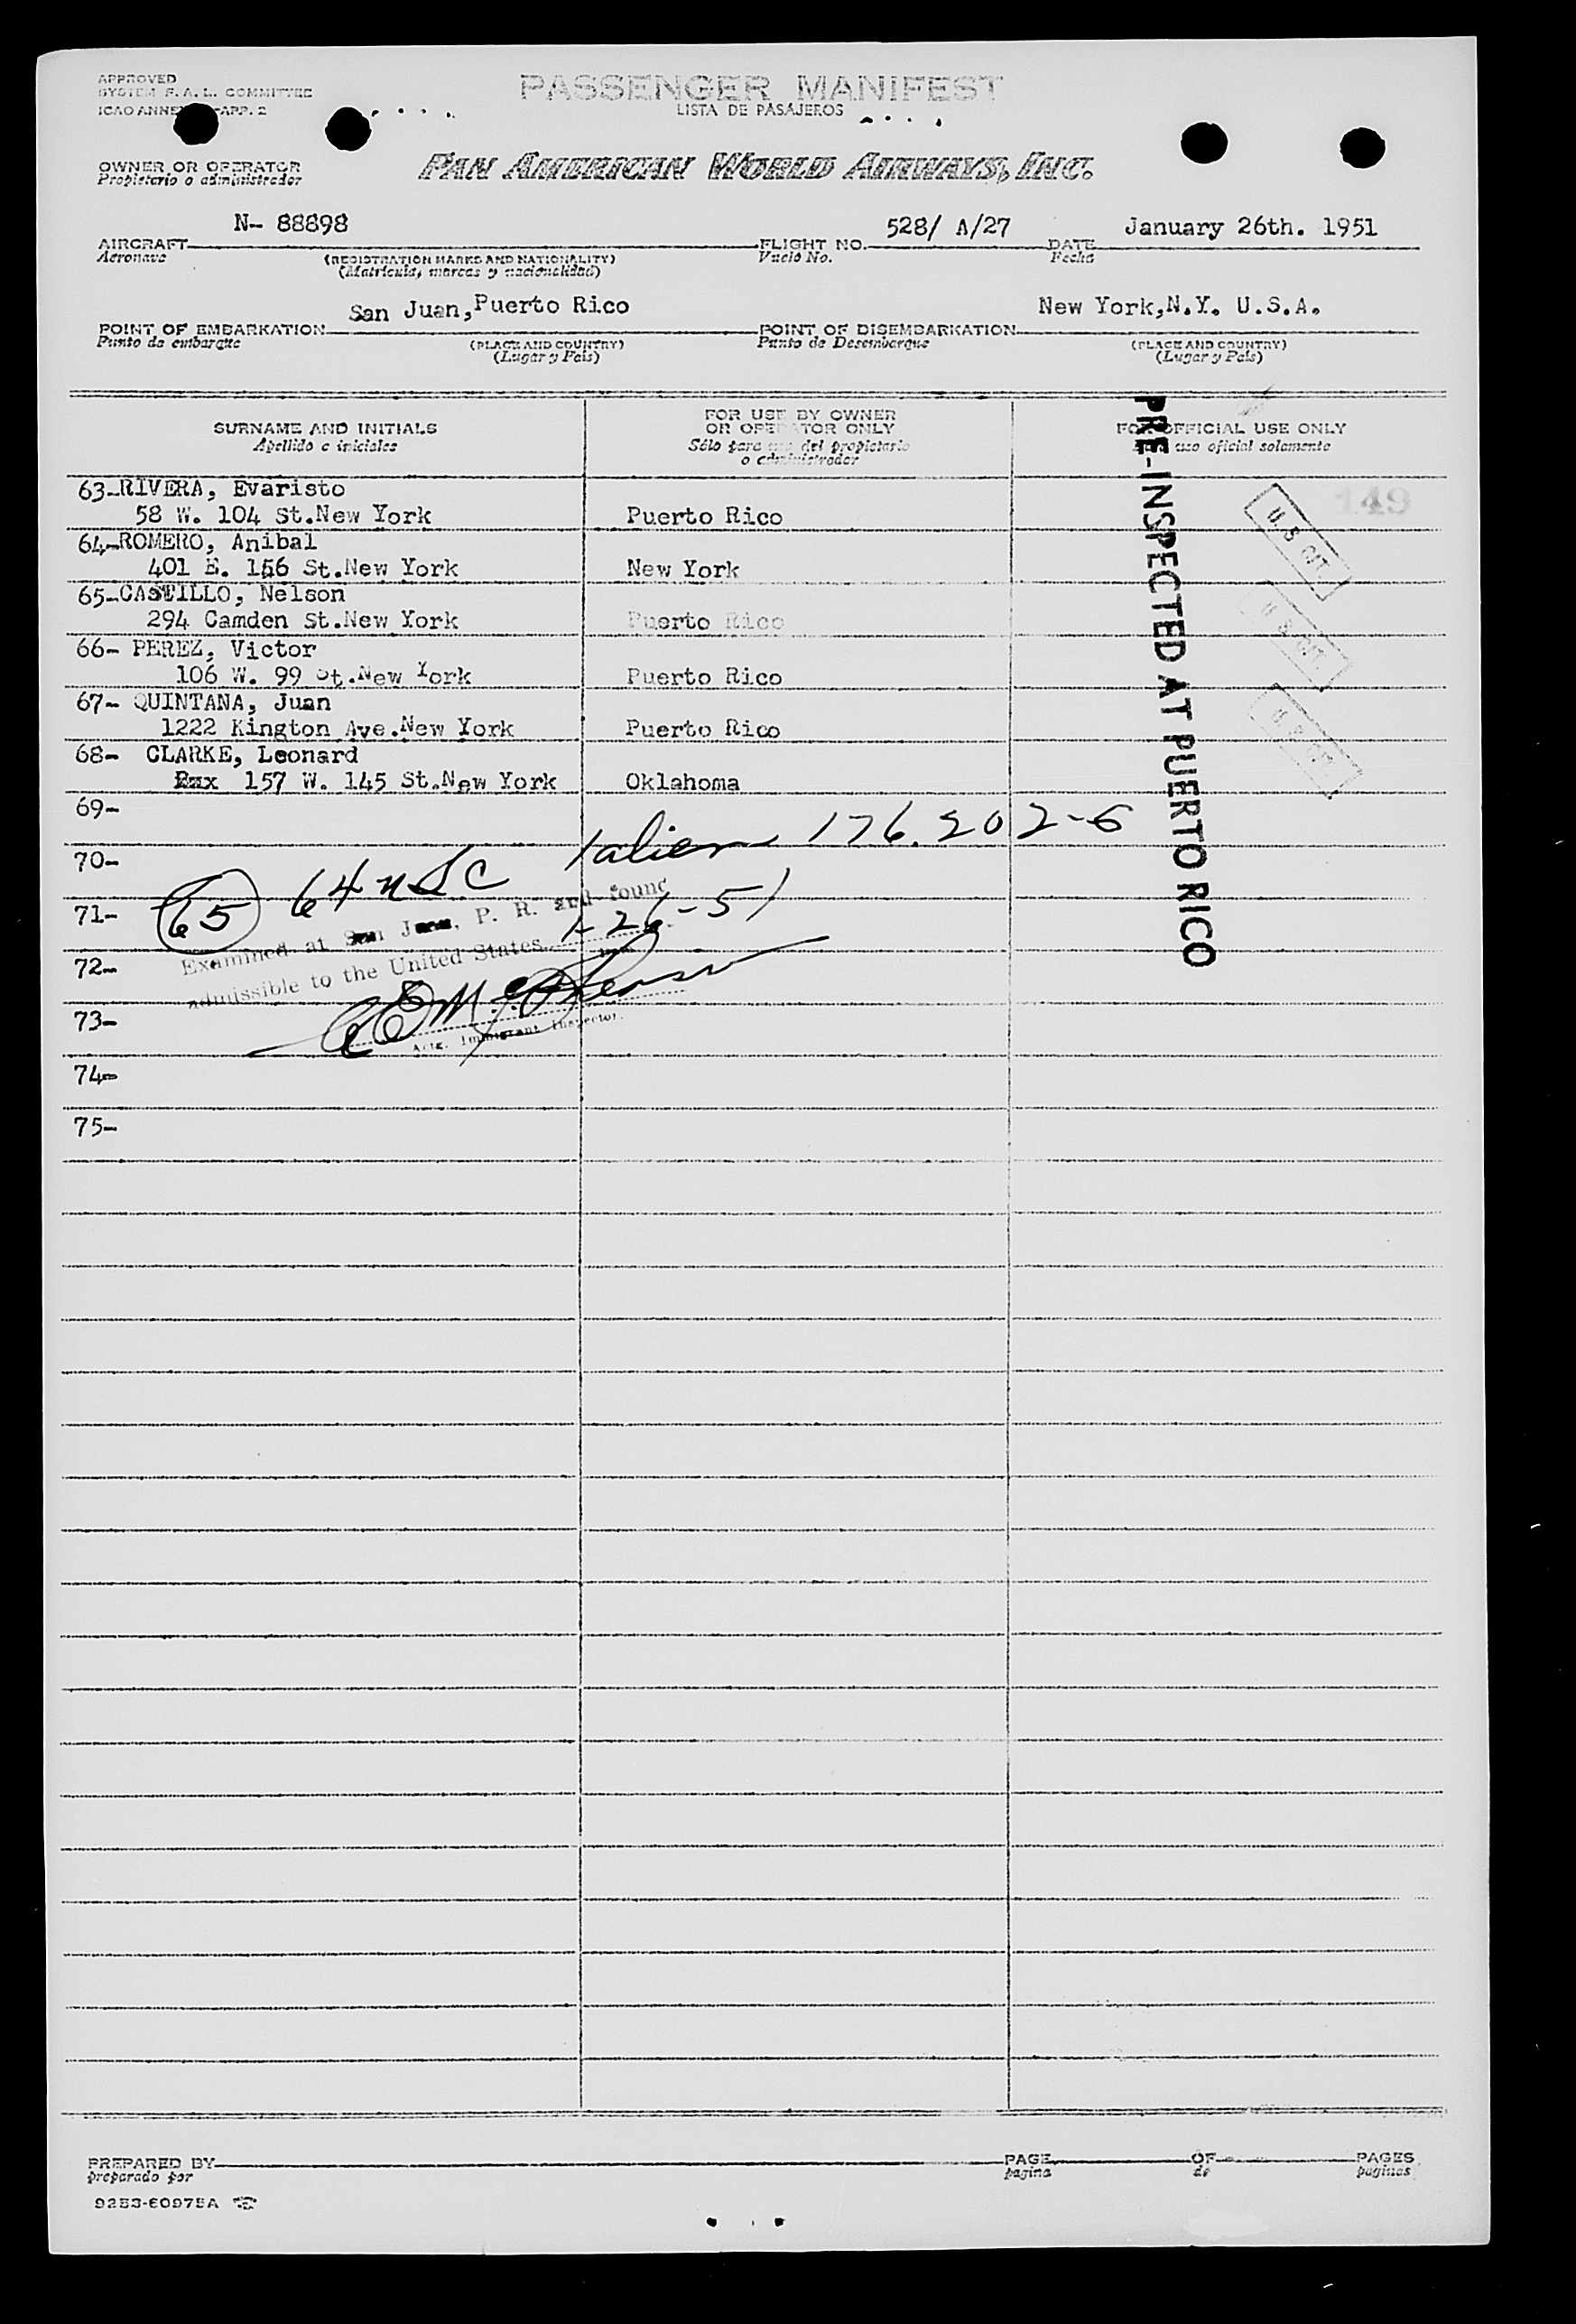 APPROVED
SYSTEM F. A. L. COMMITTEE
ICAO ANNEX APP. 2
PASSENGER MANIFEST
LISTA DE PASAJEROS
OWNER OR OPERATOR
Propietario o administrador
PAN AMERICAN WORLD AIRWAYS, INC.
N- 88898
528/ A/27
January 26th. 1951
AIRCRAFT
Aeronave
(REGISTRATION MARKS AND NATIONALITY)
(Matricula, marcas y nacionalidad)
FLIGHT NO.
Vuelo No.
DATE
Fecha
San Juan, Puerto Rico
New York,N.Y. U.S.A.
POINT OF EMBARKATION
Punto de embarque
(PLACE AND COUNTRY)
(Lugar y Pais)
POINT OF DISEMBARKATION
Punto de Desembarque
(PLACE AND COUNTRY)
(Lugar y Pais)
SURNAME AND INITIALS
Apellido e iniciales
FOR USE BY OWNER
OR OPERATOR ONLY
Sólo para uso del propietario
o administrador
FOR OFFICIAL USE ONLY
uso oficial solamente
PRE-INSPECTED AT PUERTO RICO
149
63-RIVERA, Evaristo
58 W. 104 St.New York Puerto Rico
U.S CIT.
64-ROMERO, Anibal
401 E. 156 St.New York New York
65-CASTILLO, Nelson
294 Camden St.New York Puerto Rico
U S CIT.
66- PEREZ, Victor
106 W. 99 St.New York Puerto Rico
67- QUINTANA, Juan
1222 Kington Ave.New York Puerto Rico
U.S CIT.
68- CLARKE, Leonard
157 W. 145 St.New York Oklahoma
69-
1 alien 176.202-6
70-
65 64 USC
71-
1-26-51
Examined at San Juan, P. R. and found
72-
admissible to the United States
73-
Actg. Immigrant Inspector.
74-
75-
PREPARED BY
preparado por
PAGE
pagina
OF
de
PAGES
paginas
9253-60975A